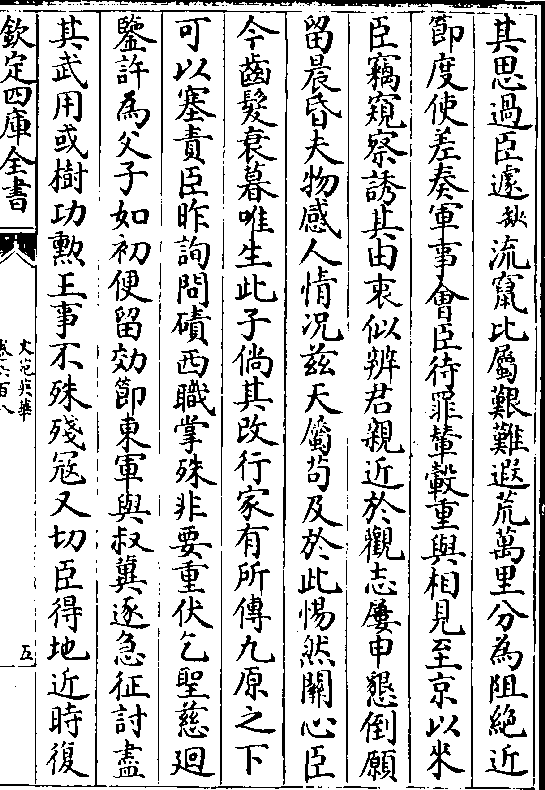 其思過臣遽缺流竄比屬艱難遐荒萬里分為阻絶近
節度使差奏軍事會臣待罪輦轂重與相見至京以來
臣竊窺察誘其由衷似辨君親近於觀志屢申懇倒願
留晨昏夫物感人情况兹天屬茍及於此惕然關心臣
今齒髮衰暮唯生此子倘其改行家有所傳九原之下
可以塞責臣昨詢問磧西職掌殊非要重伏乞聖慈廻
鑒許為父子如初便留効節東軍與叔冀逐急征討盡
其武用或樹功勲王事不殊殘冦又切臣得地近時復
欽定四庫全書
文苑英華
卷六百八
五